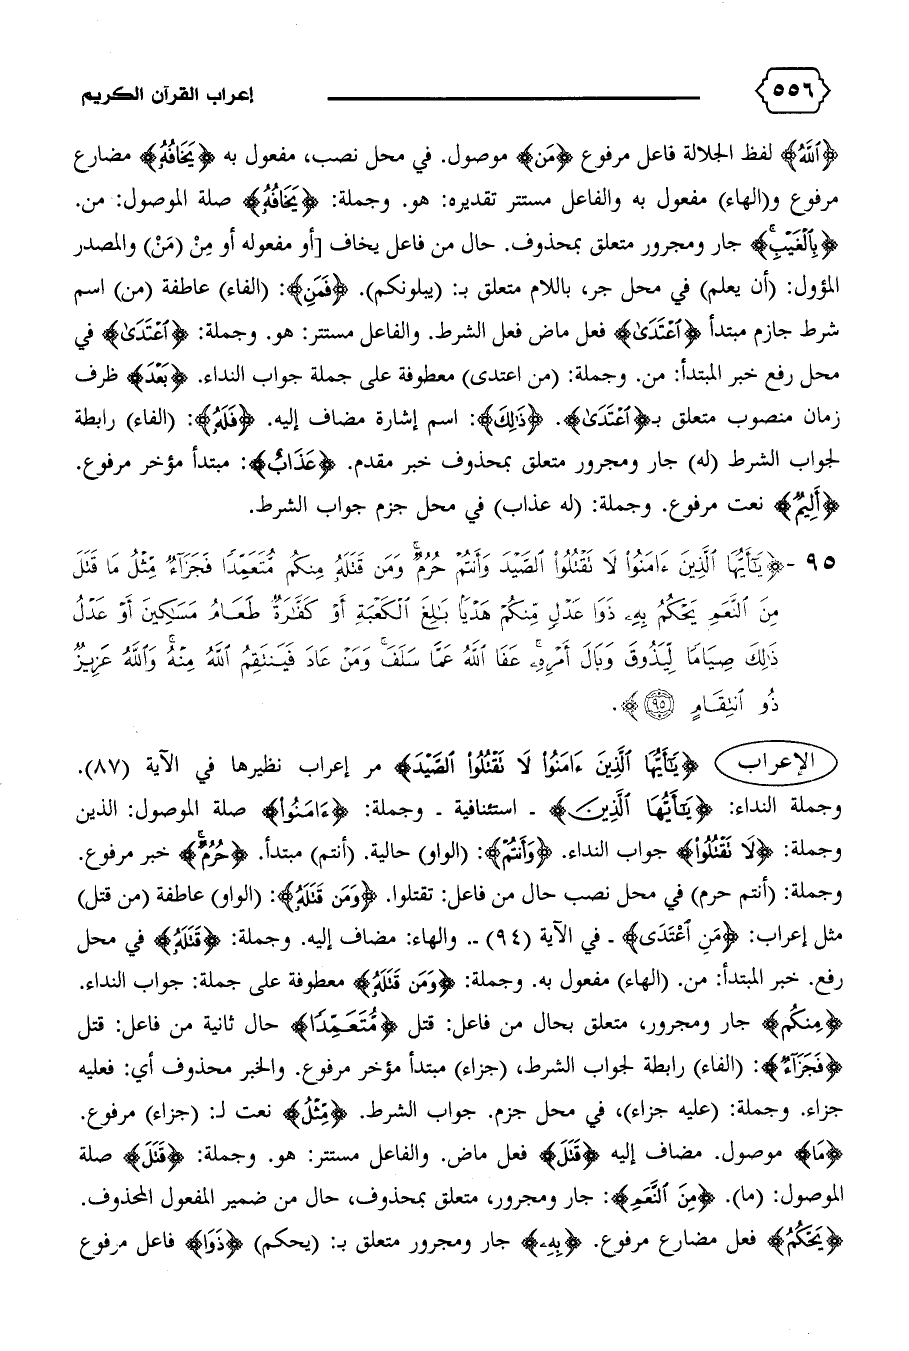 ٥٥٦ إعراب القرآن الكريم
﴿ٱللَّهُ﴾ لفظ الجلالة فاعل مرفوع ﴿مَن﴾ موصول. في محل نصب، مفعول به ﴿يَخَافُهُۥ﴾ مضارع
مرفوع و(الهاء) مفعول به والفاعل مستتر تقديره: هو. وجملة: ﴿يَخَافُهُۥ﴾ صلة الموصول: من.
﴿بِٱلْغَيْبِ﴾ جار ومجرور متعلق بمحذوف. حال من فاعل يخاف [أو مفعوله أو مِنْ (مَنْ) والمصدر
المؤول: (أن يعلم) في محل جر، باللام متعلق بـ: (يبلونكم). ﴿فَمَنِ﴾: (الفاء) عاطفة (من) اسم
شرط جازم مبتدأ ﴿ٱعْتَدَىٰ﴾ فعل ماض فعل الشرط. والفاعل مستتر: هو. وجملة: ﴿ٱعْتَدَىٰ﴾ في
محل رفع خبر المبتدأ: من. وجملة: (من اعتدى) معطوفة على جملة جواب النداء. ﴿بَعْدَ﴾ ظرف
زمان منصوب متعلق بـ﴿ٱعْتَدَىٰ﴾. ﴿ذَٰلِكَ﴾: اسم إشارة مضاف إليه. ﴿فَلَهُۥ﴾: (الفاء) رابطة
لجواب الشرط (له) جار ومجرور متعلق بمحذوف خبر مقدم. ﴿عَذَابٌ﴾: مبتدأ مؤخر مرفوع.
﴿أَلِيمٌ﴾ نعت مرفوع. وجملة: (له عذاب) في محل جزم جواب الشرط.
٩٥ - ﴿يَٰٓأَيُّهَا ٱلَّذِينَ ءَامَنُوا۟ لَا تَقْتُلُوا۟ ٱلصَّيْدَ وَأَنتُمْ حُرُمٌ ۚ وَمَن قَتَلَهُۥ مِنكُم مُّتَعَمِّدًا فَجَزَآءٌ مِّثْلُ مَا قَتَلَ
مِنَ ٱلنَّعَمِ يَحْكُمُ بِهِۦ ذَوَا عَدْلٍ مِّنكُمْ هَدْيًۢا بَٰلِغَ ٱلْكَعْبَةِ أَوْ كَفَّٰرَةٌ طَعَامُ مَسَٰكِينَ أَوْ عَدْلُ
ذَٰلِكَ صِيَامًا لِّيَذُوقَ وَبَالَ أَمْرِهِۦ ۗ عَفَا ٱللَّهُ عَمَّا سَلَفَ ۚ وَمَنْ عَادَ فَيَنتَقِمُ ٱللَّهُ مِنْهُ ۗ وَٱللَّهُ عَزِيزٌ
ذُو ٱنتِقَامٍ ٩٥﴾.
الإعراب ﴿يَٰٓأَيُّهَا ٱلَّذِينَ ءَامَنُوا۟ لَا تَقْتُلُوا۟ ٱلصَّيْدَ﴾ مر إعراب نظيرها في الآية (٨٧).
وجملة النداء: ﴿يَٰٓأَيُّهَا ٱلَّذِينَ﴾ - استئنافية - وجملة: ﴿ءَامَنُوا۟﴾ صلة الموصول: الذين
وجملة: ﴿لَا تَقْتُلُوا۟﴾ جواب النداء. ﴿وَأَنتُمْ﴾: (الواو) حالية. (أنتم) مبتدأ. ﴿حُرُمٌ ۚ﴾ خبر مرفوع.
وجملة: (أنتم حرم) في محل نصب حال من فاعل: تقتلوا. ﴿وَمَن قَتَلَهُۥ﴾: (الواو) عاطفة (من قتل)
مثل إعراب: ﴿مَنِ ٱعْتَدَى﴾ - في الآية (٩٤) -. والهاء: مضاف إليه. وجملة: ﴿قَتَلَهُۥ﴾ في محل
رفع. خبر المبتدأ: من. (الهاء) مفعول به. وجملة: ﴿وَمَن قَتَلَهُۥ﴾ معطوفة على جملة: جواب النداء.
﴿مِنكُم﴾ جار ومجرور، متعلق بحال من فاعل: قتل ﴿مُّتَعَمِّدًا﴾ حال ثانية من فاعل: قتل
﴿فَجَزَآءٌ﴾: (الفاء) رابطة لجواب الشرط، (جزاء) مبتدأ مؤخر مرفوع. والخبر محذوف أي: فعليه
جزاء. وجملة: (عليه جزاء)، في محل جزم. جواب الشرط. ﴿مِّثْلُ﴾ نعت لـ: (جزاء) مرفوع.
﴿مَا﴾ موصول. مضاف إليه ﴿قَتَلَ﴾ فعل ماض. والفاعل مستتر: هو. وجملة: ﴿قَتَلَ﴾ صلة
الموصول: (ما). ﴿مِنَ ٱلنَّعَمِ﴾: جار ومجرور، متعلق بمحذوف، حال من ضمير المفعول المحذوف.
﴿يَحْكُمُ﴾ فعل مضارع مرفوع. ﴿بِهِۦ﴾ جار ومجرور متعلق بـ: (يحكم) ﴿ذَوَا﴾ فاعل مرفوع